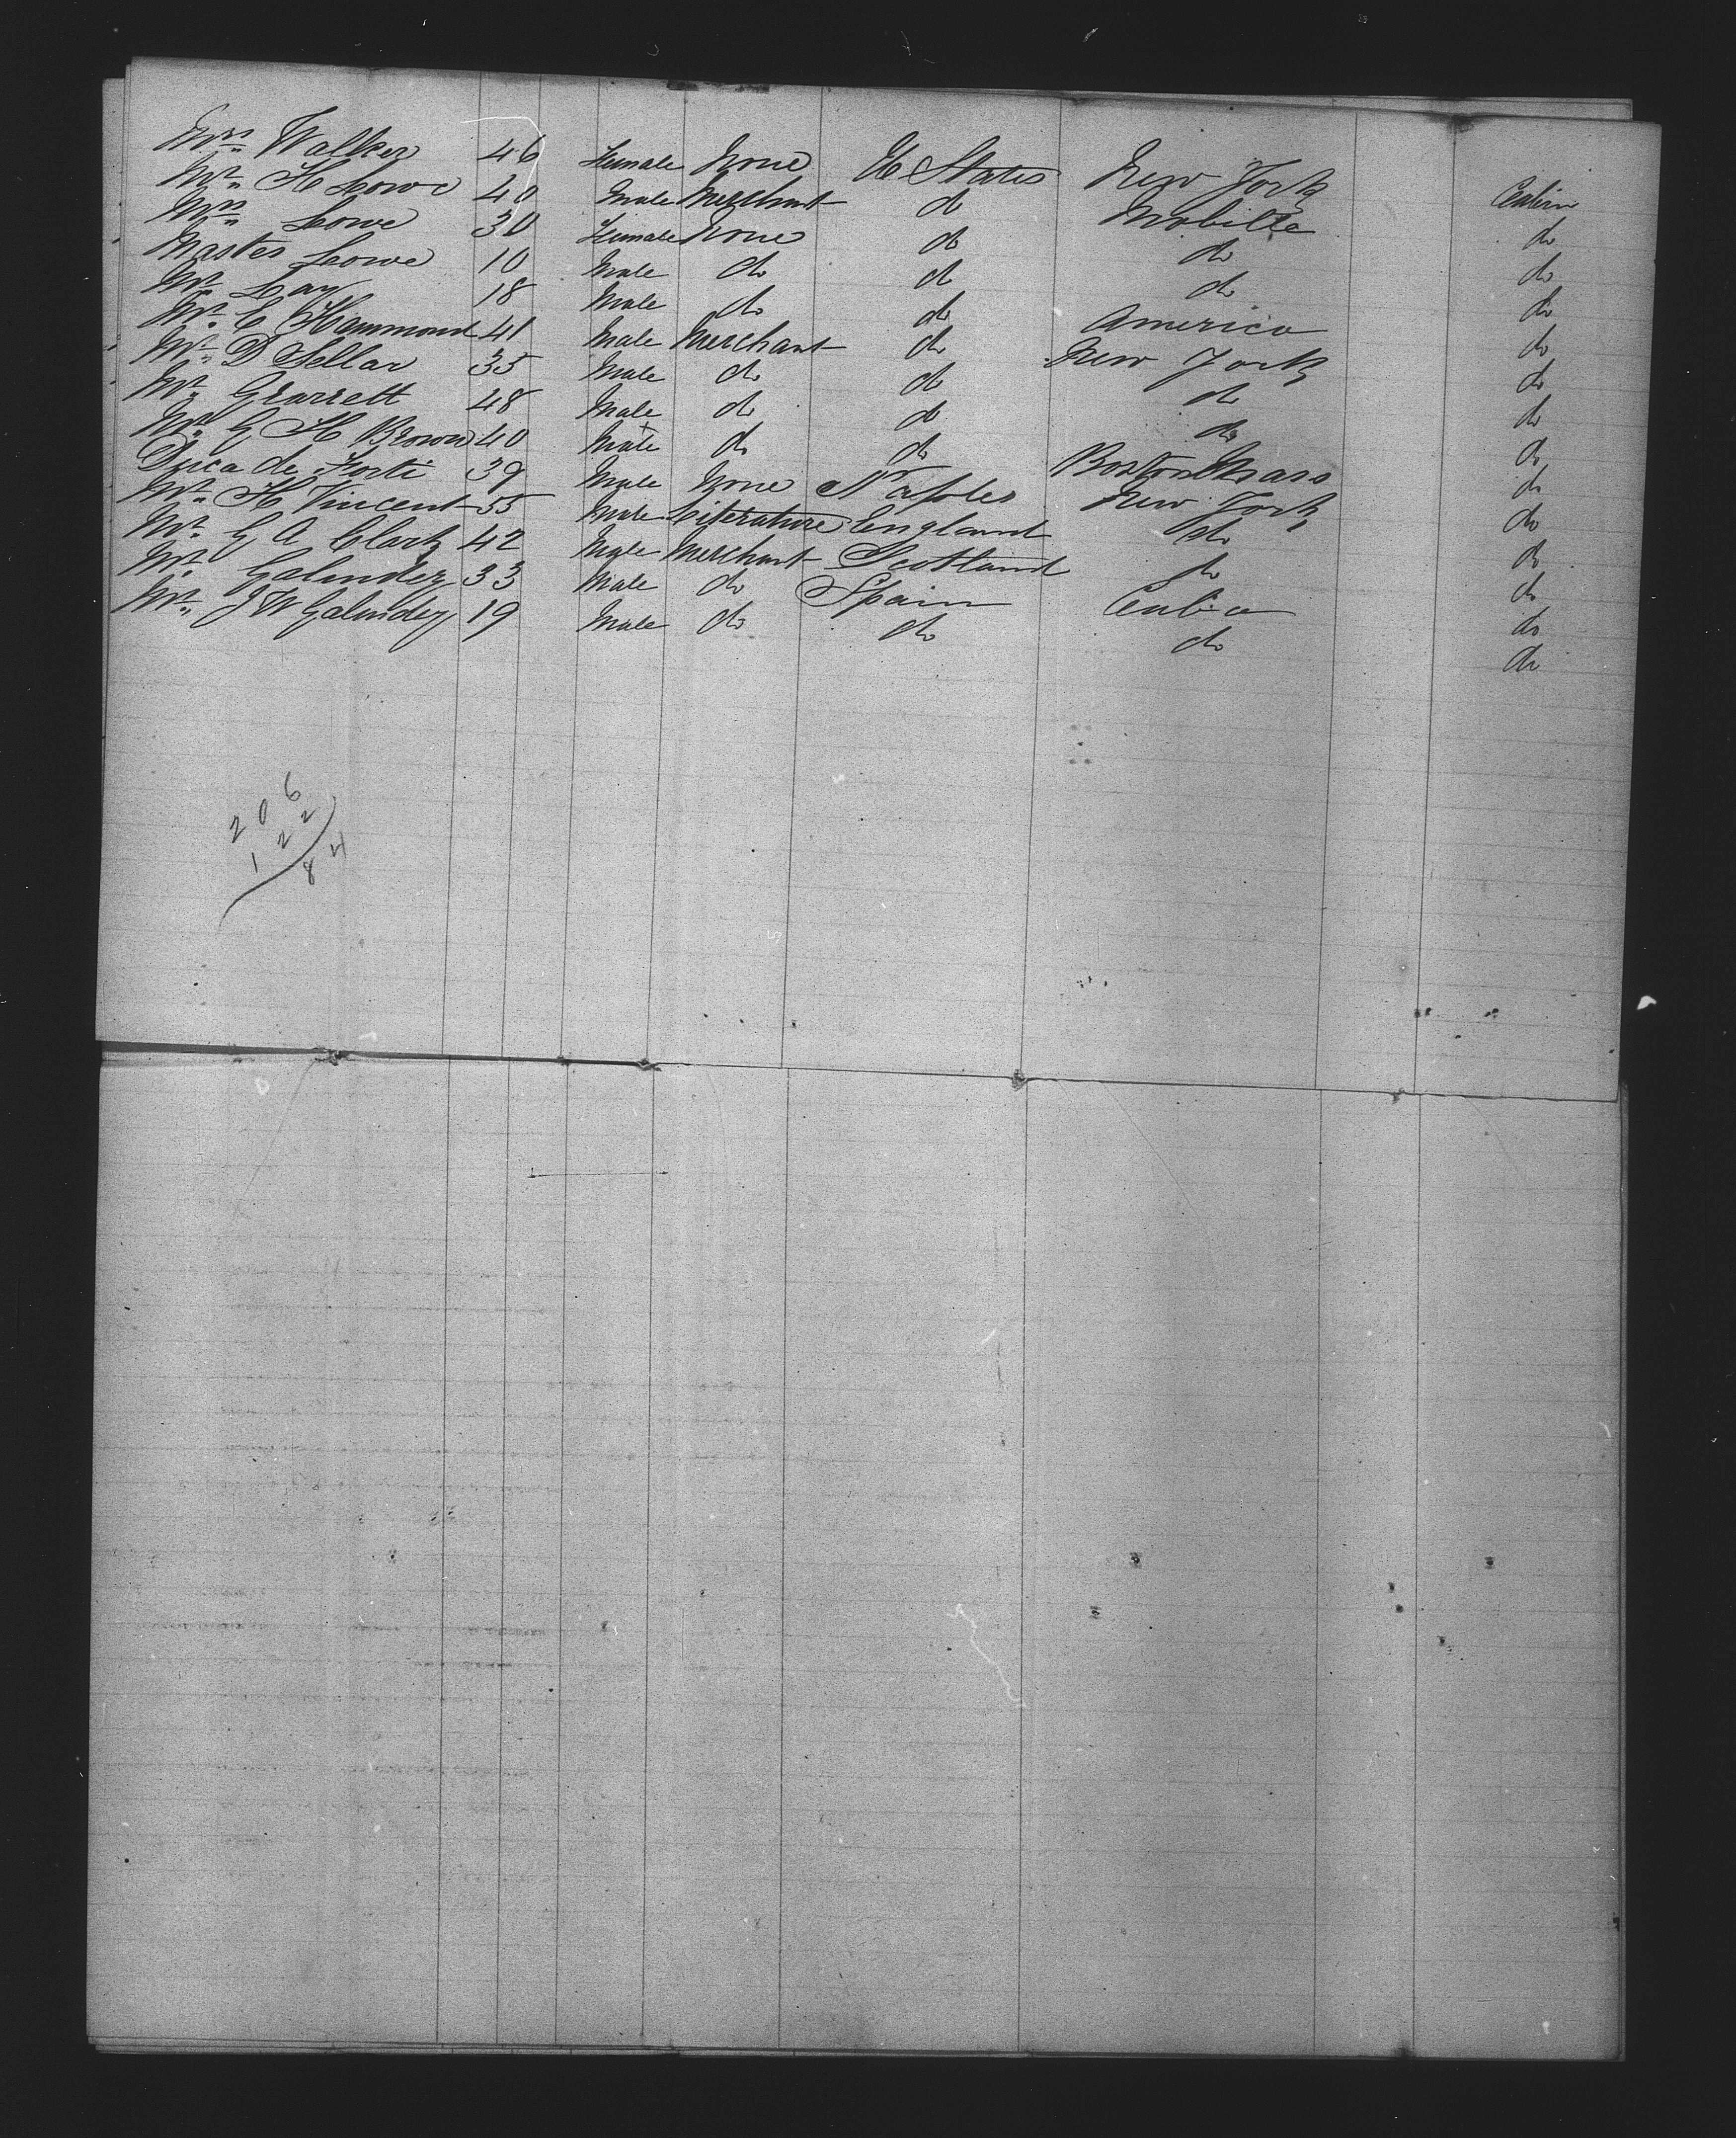 Mrs Walker 46 Female None U States New York Cabin
Mr. H Lowe 40 Male Merchant do Mobille do
Mrs Lowe 30 Female None do do do
Master Lowe 10 Male do do do do
Mr. Lay 18 Male do do America do
Mr. C Hammond 41 Male Merchant do New York do
Mr. D Sellar 35 Male do do do do
Mr. Grarrett 48 Male do do do do
Mr. G H Brown 40 Male do do Boston Mass do
Duca de Forti 39 Male None Naples New York do
Mr. H Vincent 55 Male Literature England do do
Mr. G A Clark 42 Male Merchant Scotland do do
Mr. Galindez 33 Male do Spain Cuba do
Mr. J W Galindez 19 Male do do do do
206
122
84